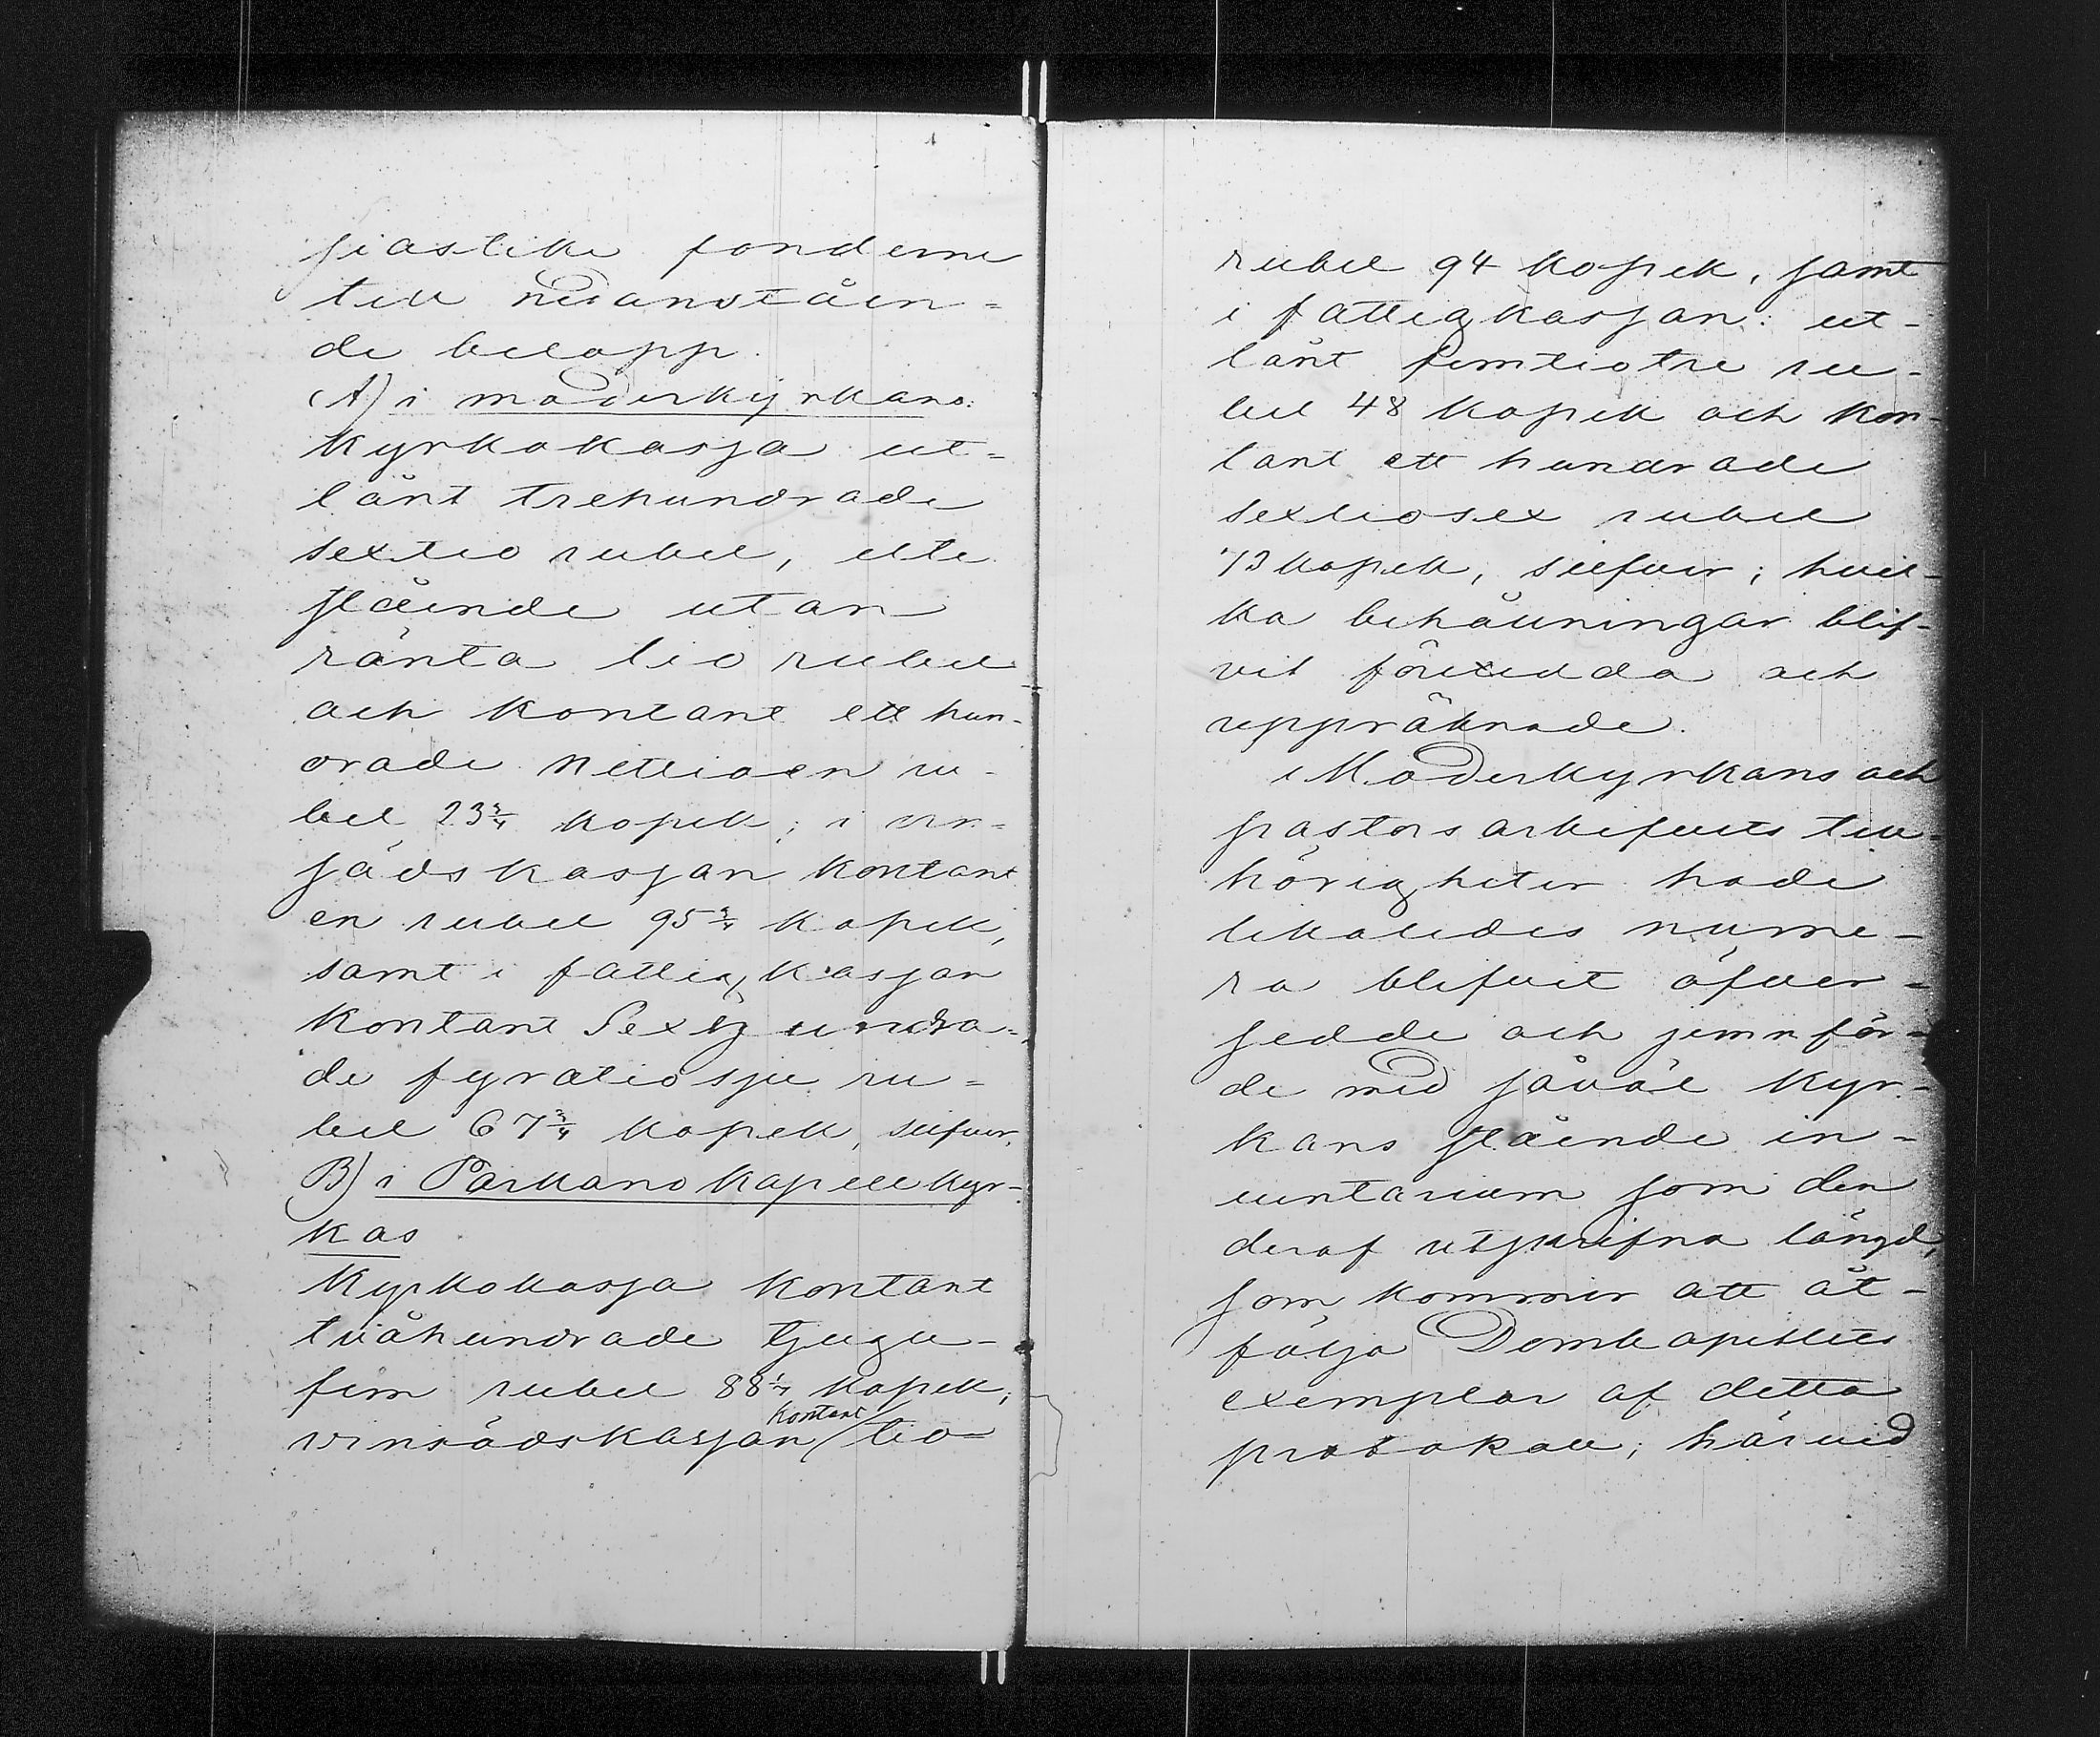 siastike fonderne
till nedanståen=
de belopp.
A) i moderkyrkans:
Kyrkokassa ut=
lånt trehundrade
sextio rubel, ute
stående utan
ränta tio rubel
och kontant ett hun-
drade nettioen ru-
bel 23 3/4 kopek; i vin=
sädskassan kontant
en rubel 95 3/4 kopek,
samt i fattigkassan
kontant Sexhundra=
de fyratiosju ru=
bel 67 3/4 kopek, silfver.
B) i Parkano kapellkyr-
kas
Kyrkokassa kontant
tvåhundrade tjugu-
fem rubel 88 1/4 kopek;
kontant
vinsädskassan tio
rubel 94 kopek, samt
i fattigkassan: ut-
lånt femtiotre ru-
bel 48 kopek och kon-
tant ett hundrade
sextiosex rubel
73 kopek, silfver; hvil-
ka behållningar blif-
vit företedda och
uppräknade.
Moderkyrkans och
pastors arkifvets till-
hörigheter hade
likaledes nume-
ra blifvit öfver-
sedde och jemnför-
de med såväl Kyr-
kans stående in-
ventarium som den
deraf utskrifna längd,
som kommer att åt-
följa Domkapitlets
exemplar af detta
protokoll; härvid